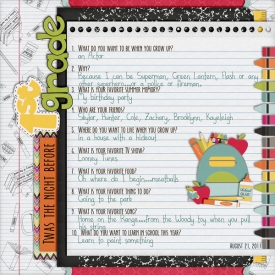 1st grade
TWAS THE NIGHT BEFORE
1. WHAT DO YOU WANT TO BE WHEN YOU GROW UP?
an Actor
2. WHY?
Because I can be Superman, Green Lantern, Flash or any
other superhero...or a police or fireman.
3. WHAT IS YOUR FAVORITE SUMMER MEMORY?
My birthday party
4. WHO ARE YOUR FRIENDS?
Skylar, Hunter, Cole, Zachary, Brooklynn, Kayeleigh
5. WHERE DO YOU WANT TO LIVE WHEN YOU GROW UP?
in a house with a hideout
6. WHAT IS YOUR FAVORITE TV SHOW?
Looney Tunes
7. WHAT IS YOUR FAVORITE FOOD?
Oh where do I begin....meatballs
8. WHAT IS YOUR FAVORITE THING TO DO?
Going to the park
9. WHAT IS YOUR FAVORITE SONG?
Home on the Range....from the Woody toy when you pull
his string
10. WHAT DO YOU WANT TO LEARN IN SCHOOL THIS YEAR?
Learn to paint something
AUGUST 21, 2011